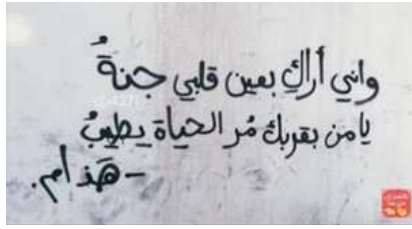 واني أراكِ بعين قلبي جنةُ
يا من بقربك مُر الحياة يطيبُ
- هَذام.